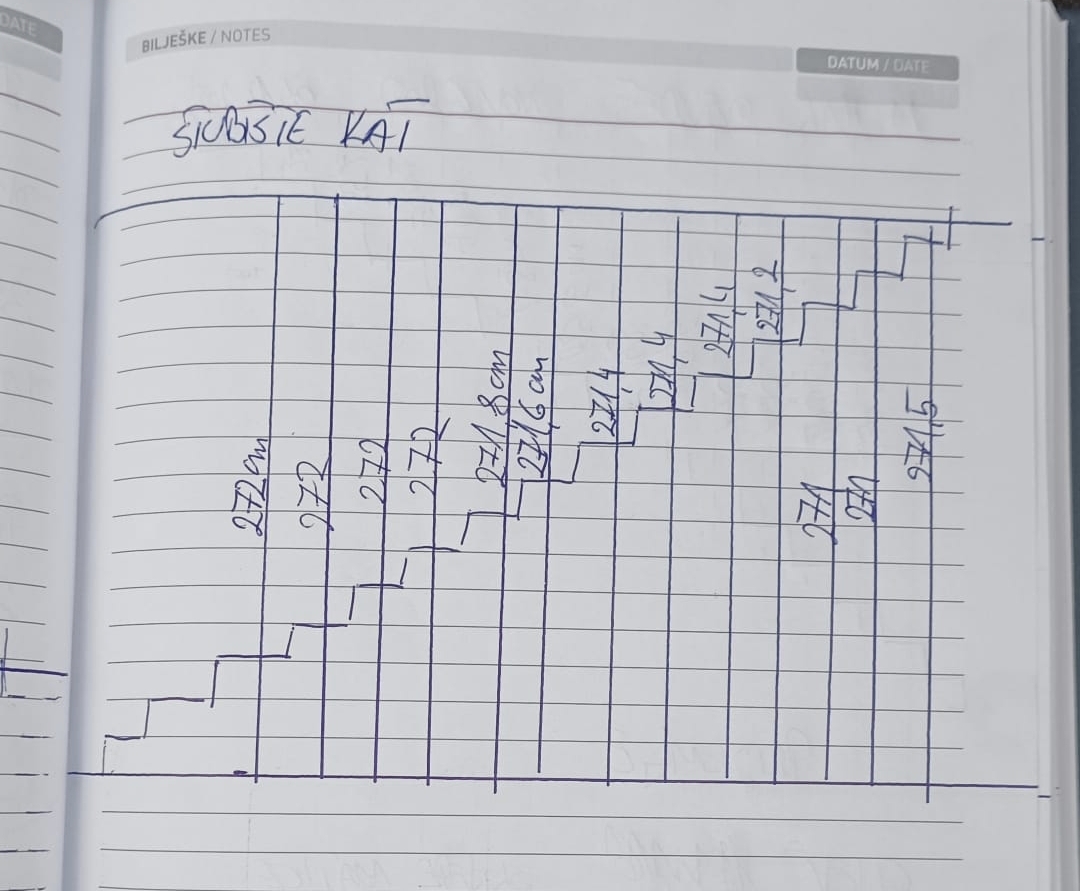 DATE
BILJEŠKE / NOTES
DATUM / DATE
STUBIŠTE KAT
272 cm
272
272
272
271,8 cm
271,6 cm
271,4
271,4
271,4
271,2
271
271
271,5